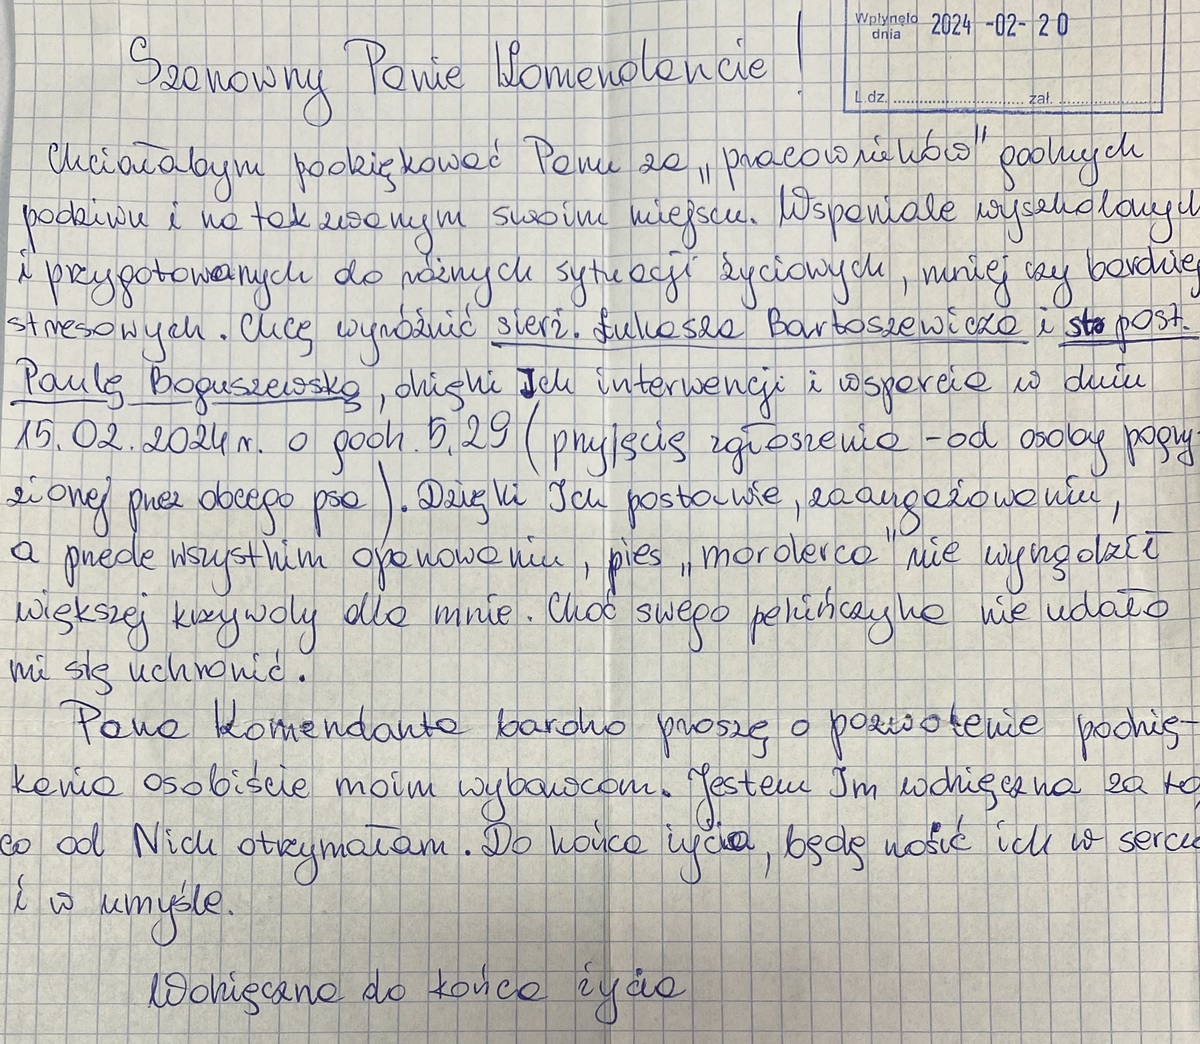 Wpłynęło
dnia 2024 -02- 20
L.dz. ........................ zał. ....................
Szanowny Panie Komendancie !
Chciałabym podziękować Panu za „pracowników" godnych
podziwu i na tak zwanym swoim miejscu. Wspaniale wyszkolonych
i przygotowanych do różnych sytuacji życiowych, mniej czy bardziej
stresowych. Chcę wyróżnić sierż. Łukasza Bartoszewicza i post.
Paulę Boguszewską, dzięki Ich interwencji i wsparcie w dniu
15.02.2024 r. o godz. 5,29 (przyjęcie zgłoszenia - od osoby pogry-
zionej przez obcego psa). Dzięki Ich postawie, zaangażowaniu,
a przede wszystkim opanowaniu, pies „morderca" nie wyrządził
większej krzywdy dla mnie. Choć swego pekińczyka nie udało
mi się uchronić.
Pana Komendanta bardzo proszę o pozwolenie podzię-
kania osobiście moim wybawcom. Jestem Im wdzięczna za to
co od Nich otrzymałam. Do końca życia, będę nosić ich w sercu
i w umyśle.
Wdzięczna do końca życia